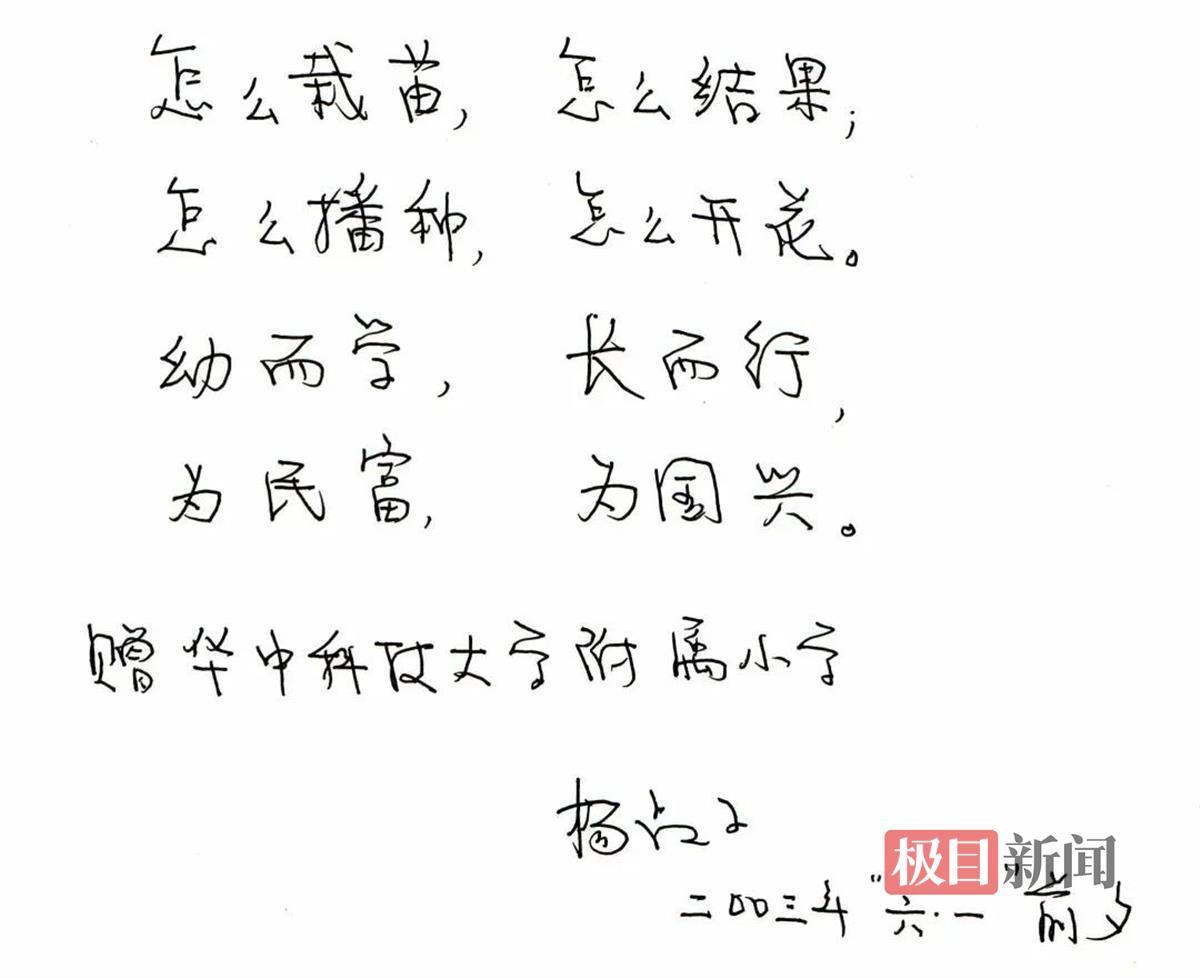 怎么栽苗, 怎么结果;
怎么播种, 怎么开花。
幼而学, 长而行,
为民富, 为国兴。
赠华中科技大学附属小学
杨叔子
极目新闻
二〇〇三年“六·一”前夕